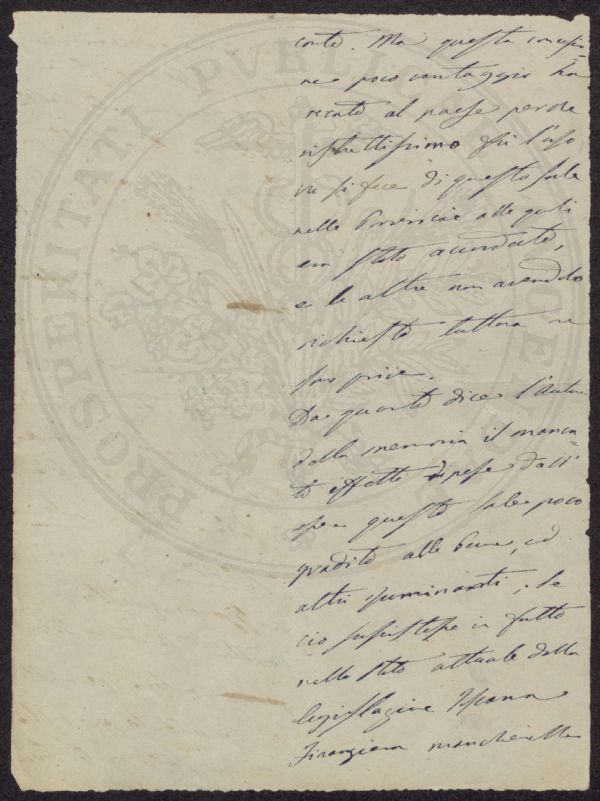 conto. Ma questa concessio=
ne poco vantaggio ha
recato al paese perche
ristrettissimo fù l'uso
che si fece di questo sale
nelle Provincie alle quali
era stato accordato,
e le altre non avendolo
richiesto tuttora ne
son prive.
Da quanto dice l'Autore
della memoria il manca=
to effetto dipese dall'
esser questo sale poco
gradito alle Pecore, ed
altri ruminanti; Se
ciò sussistesse in fatto
nello Stato attuale della
legislazione Toscana
Finanziera mancherebbe
PROSPERITATI PUBLICAE